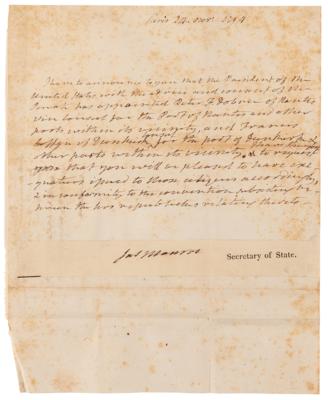 Paris 24. Novr. 1794
I have to announce to you that the President of the
United States with the advice and consent of the
Senate has appointed Peter F. Dobree of Nantes
vice Consul for the Port of Nantes and other
ports within its vicinity, and Francis
Coffyn of Dunkirk consul for the port of Dunkirk &
other ports within its vicinity. I have therefore to request
you that you will be pleased to have exe
quaturs issued to those citizens accordingly,
in conformity to the convention subsisting be
tween the two republicks relative thereto.
Jas Monroe
Secretary of State.